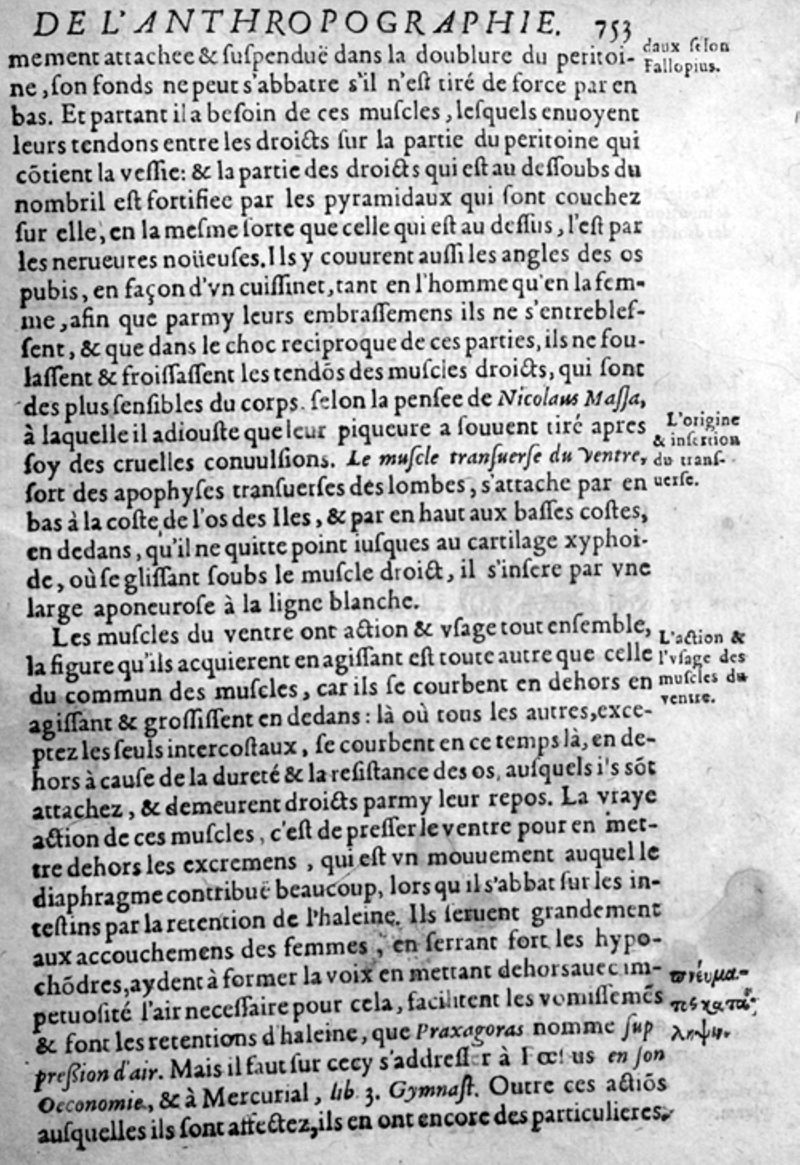 DE L'ANTHROPOGRAPHIE. 753
mement attachee & ſuſpenduë dans la doublure du peritoi-
ne, ſon fonds ne peut s'abbatre s'il n'eſt tiré de force par en
bas. Et partant il a beſoin de ces muſcles, leſquels enuoyent
leurs tendons entre les droicts ſur la partie du peritoine qui
cõtient la veſſie: & la partie des droicts qui eſt au deſſoubs du
nombril eſt fortifiee par les pyramidaux qui ſont couchez
ſur elle, en la meſme ſorte que celle qui eſt au deſſus, l'eſt par
les nerueures noüeuſes. Ils y couurent auſſi les angles des os
pubis, en façon d'vn cuiſſinet, tant en l'homme qu'en la fem-
me, afin que parmy leurs embraſſemens ils ne s'entrebleſ-
ſent, & que dans le choc reciproque de ces parties, ils ne fou-
laſſent & froiſſaſſent les tendõs des muſcles droicts, qui ſont
des plus ſenſibles du corps. ſelon la penſee de Nicolaus Maſſa,
à laquelle il adiouſte que leur piqueure a ſouuent tiré apres
ſoy des cruelles conuulſions. Le muſcle tranſuerſe du Ventre,
ſort des apophyſes tranſuerſes des lombes, s'attache par en
bas à la coſte de l'os des Iles, & par en haut aux baſſes coſtes,
en dedans, qu'il ne quitte point iuſques au cartilage xyphoi-
de, où ſe gliſſant ſoubs le muſcle droict, il s'inſere par vne
large aponeuroſe à la ligne blanche.
Les muſcles du ventre ont action & vſage tout enſemble,
la figure qu'ils acquierent en agiſſant eſt toute autre que celle
du commun des muſcles, car ils ſe courbent en dehors en
agiſſant & groſſiſſent en dedans: là où tous les autres, exce-
ptez les ſeuls intercoſtaux, ſe courbent en ce temps là, en de-
hors à cauſe de la dureté & la reſiſtance des os, auſquels i's sõt
attachez, & demeurent droicts parmy leur repos. La vraye
action de ces muſcles, c'eſt de preſſer le ventre pour en met-
tre dehors les excremens, qui eſt vn mouuement auquel le
diaphragme contribuë beaucoup, lors qu il s'abbat ſur les in-
teſtins par la retention de l'haleine. Ils ſeruent grandement
aux accouchemens des femmes, en ſerrant fort les hypo-
chõdres, aydent à former la voix en mettant dehors auec im-
petuoſité l'air neceſſaire pour cela, facilitent les vomiſſemẽs
& font les retentions d'haleine, que Praxagoras nomme ſup
preßion d'air. Mais il faut ſur cecy s'addreſſer à Fœſius en ſon
Oeconomie, & à Mercurial, lib 3. Gymnaſt. Outre ces actiõs
auſquelles ils ſont affectez, ils en ont encore des particulieres,
daux ſelon
Fallopius.
L'origine
& inſertion
du tranſ-
uerſe.
L'action &
l'vſage des
muſcles du
ventre.
πνεύμα-